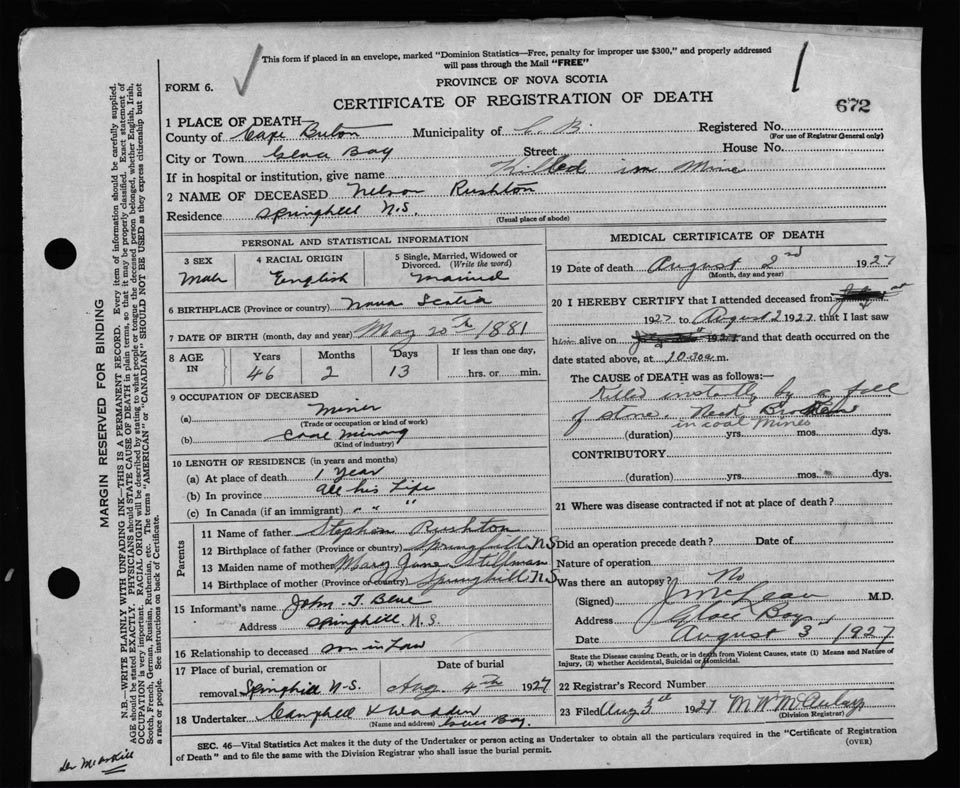 This form if placed in an envelope, marked "Dominion Statistics—Free, penalty for improper use $300," and properly addressed
will pass through the Mail "FREE"
PROVINCE OF NOVA SCOTIA
FORM 6.
CERTIFICATE OF REGISTRATION OF DEATH
672
1 PLACE OF DEATH—
County of Cape Breton Municipality of C. B. Registered No.
(For use of Registrar General only)
City or Town Glace Bay Street House No.
If in hospital or institution, give name Killed in Mine
2 NAME OF DECEASED Nelson Rushton
Residence Springhill N.S.
(Usual place of abode)
PERSONAL AND STATISTICAL INFORMATION
3 SEX 4 RACIAL ORIGIN 5 Single, Married, Widowed or Divorced. (Write the word)
Male English Married
6 BIRTHPLACE (Province or country) Nova Scotia
7 DATE OF BIRTH (month, day and year) May 20th 1881
8 AGE IN Years Months Days If less than one day,
46 2 13 hrs. or min.
9 OCCUPATION OF DECEASED
(a) Miner
(Trade or occupation or kind of work)
(b) Coal Mining
(Kind of industry)
10 LENGTH OF RESIDENCE (in years and months)
(a) At place of death 1 Year
(b) In province all his Life
(c) In Canada (if an immigrant) " " "
Parents
11 Name of father Stephen Rushton
12 Birthplace of father (Province or country) Springhill NS
13 Maiden name of mother Mary Jane Stillman
14 Birthplace of mother (Province or country) Springhill NS
15 Informant's name John T Blue
Address Springhill N.S.
16 Relationship to deceased son in Law
17 Place of burial, cremation or Date of burial
removal Springhill N-S. Aug. 4th 1927
18 Undertaker Campbell &
(Name and address) Glace Bay.
MEDICAL CERTIFICATE OF DEATH
19 Date of death August 2nd 1927
(Month, day and year)
20 I HEREBY CERTIFY that I attended deceased from
1927 to August 2 1927 that I last saw
him alive on 192 and that death occurred on the
date stated above, at 10 30a m.
The CAUSE of DEATH was as follows:—
Killed instantly by a fall
of stone. Neck Broken
in coal mines
(duration) yrs. mos. dys.
CONTRIBUTORY
(duration) yrs. mos. dys.
21 Where was disease contracted if not at place of death?
Did an operation precede death? Date of
Nature of operation
Was there an autopsy? No
(Signed) J McLean M.D.
Address Glace Bay
Date August 3rd 1927
State the Disease causing Death, or in death from Violent Causes, state (1) Means and Nature of
Injury, (2) whether Accidental, Suicidal or Homicidal.
22 Registrar's Record Number
23 Filed Aug 3rd 1927
(Division Registrar)
SEC. 46—Vital Statistics Act makes it the duty of the Undertaker or person acting as Undertaker to obtain all the particulars required in the "Certificate of Registration
of Death" and to file the same with the Division Registrar who shall issue the burial permit.
(OVER)
MARGIN RESERVED FOR BINDING
N.B.—WRITE PLAINLY WITH UNFADING INK—THIS IS A PERMANENT RECORD. Every item of information should be carefully supplied.
AGE should be stated EXACTLY. PHYSICIANS should STATE CAUSE OF DEATH in plain terms, so that it may be properly classified. Exact statement of
OCCUPATION is very important. RACIAL ORIGIN will be described by stating to what people or tongue the deceased person belonged, whether English, Irish,
Scotch, French, German, Russian, Ruthenian, etc. The terms "AMERICAN" or "CANADIAN" SHOULD NOT BE USED as they express citizenship but not
a race or people. See instructions on back of Certificate.